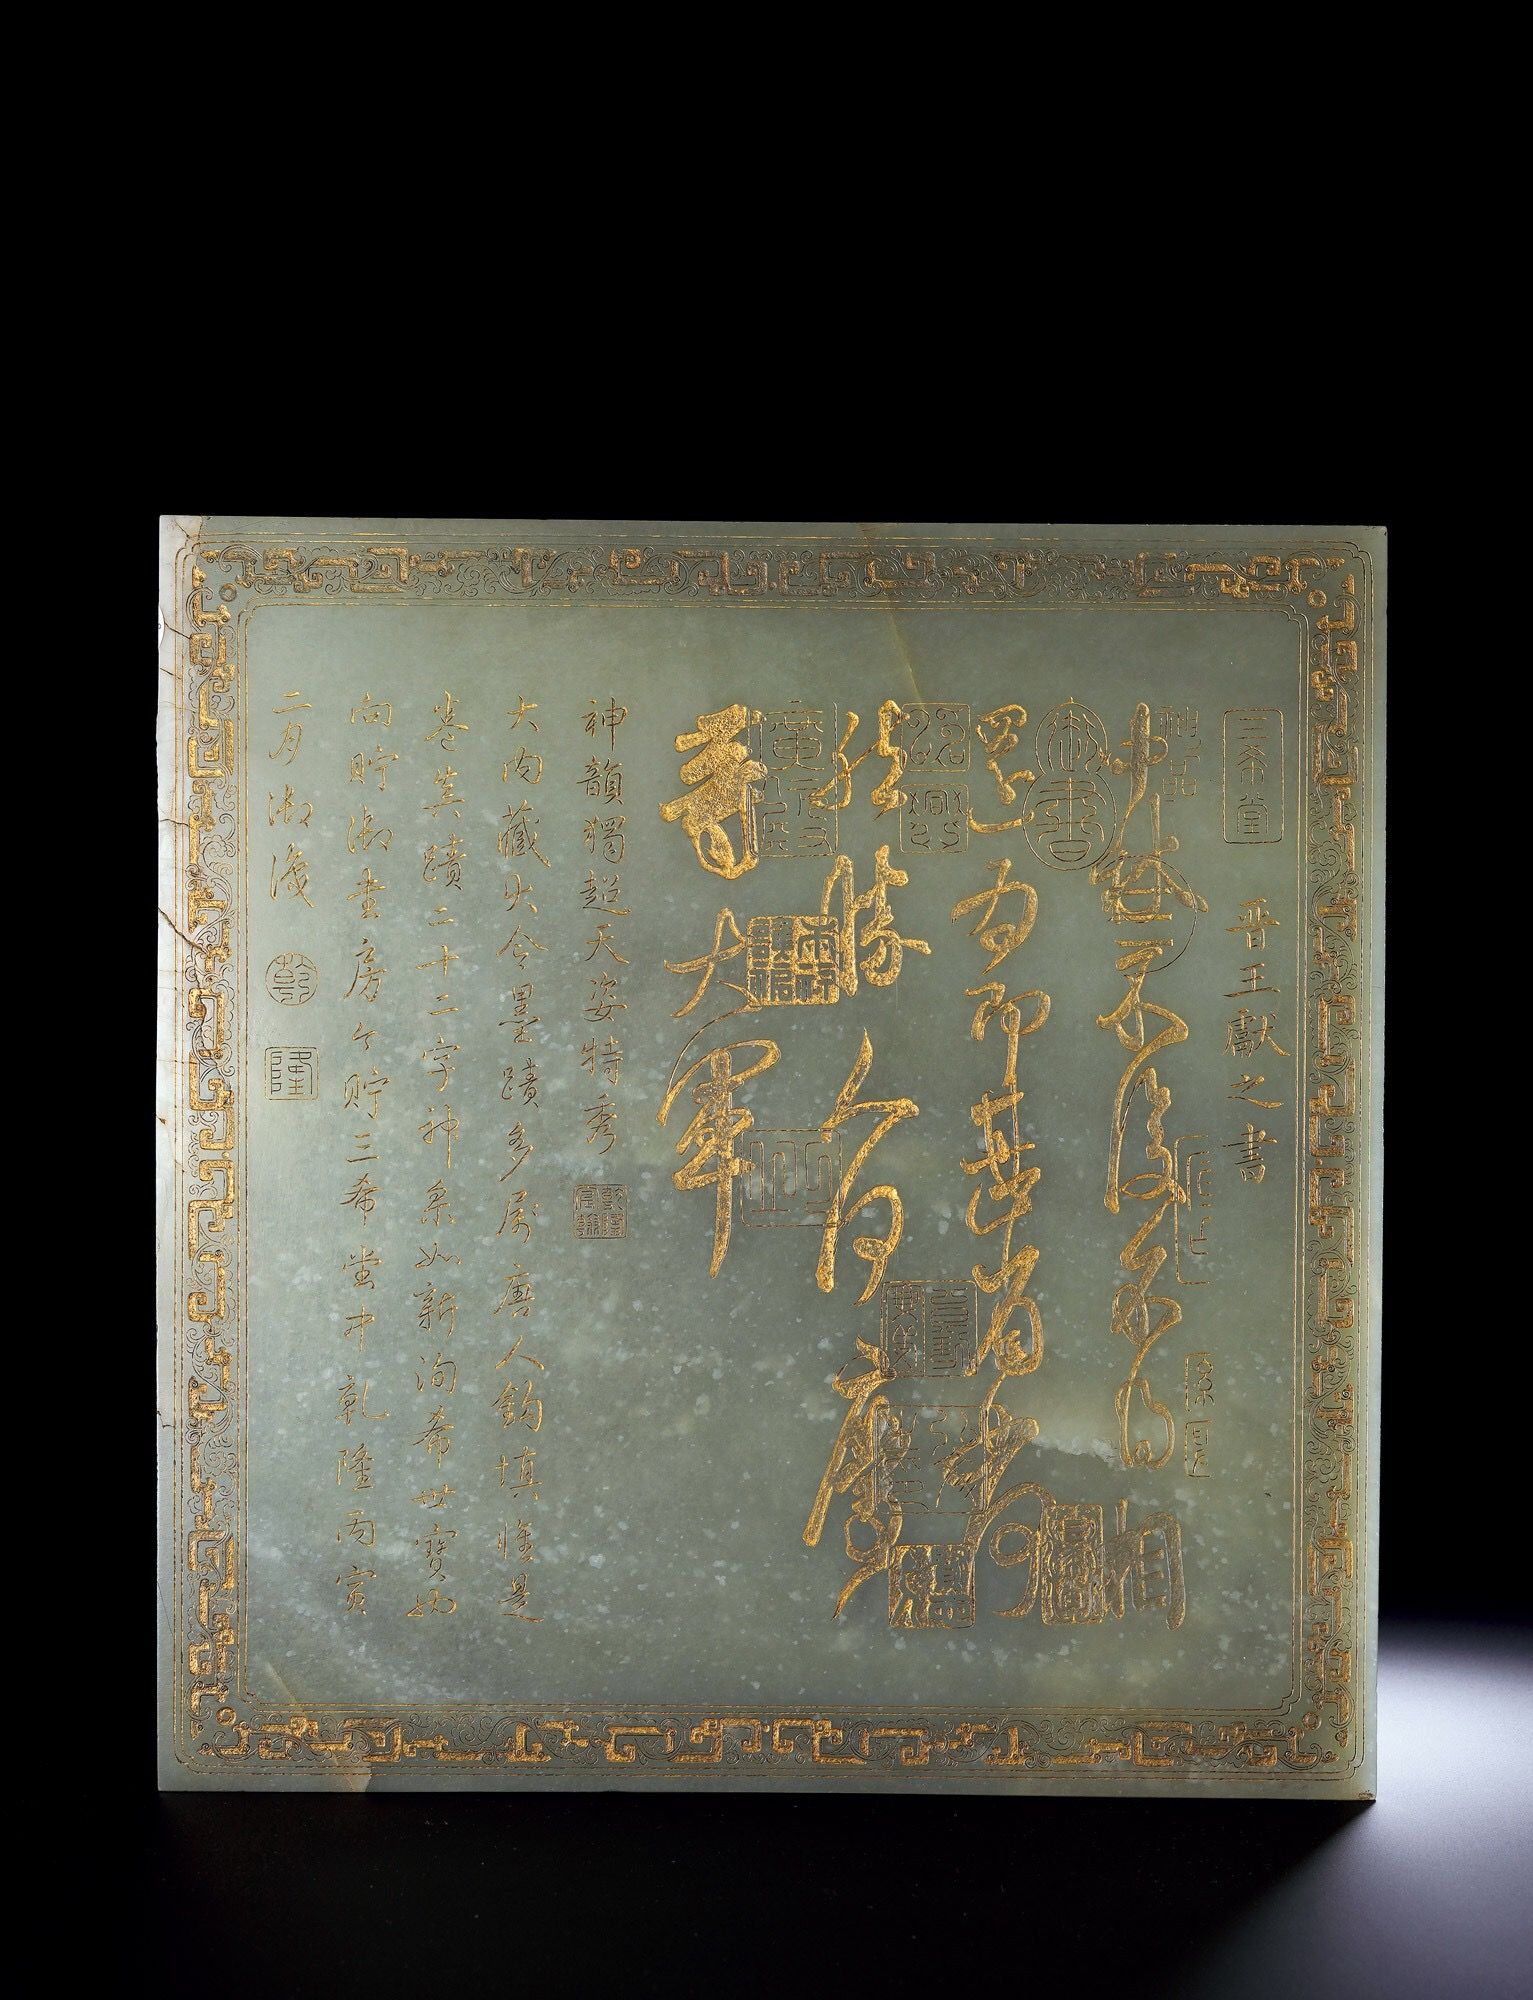 三希堂
晋王獻之書
神品
御書
中秋不復不得相
還為即甚省如何
然勝人何慶
等大軍
神韻獨超天姿特秀
乾隆宸翰
大內藏大令墨蹟多屬唐人鈎填惟是
卷真蹟二十二字神采如新洵希世寶也
向貯御書房今貯三希堂中乾隆丙寅
二月御識
乾
隆